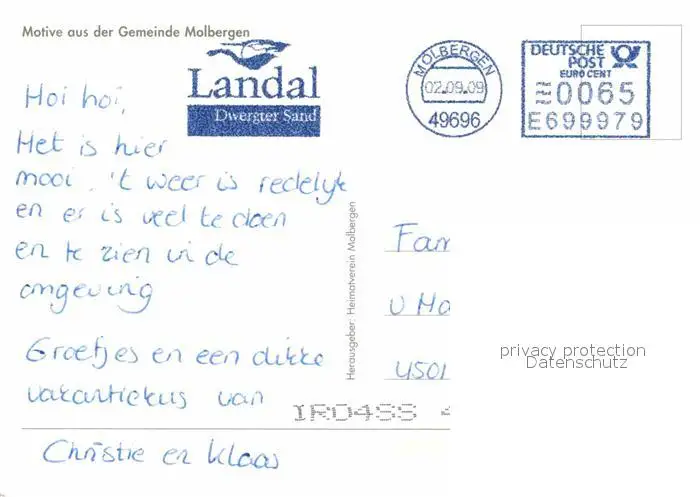 Motive aus der Gemeinde Molbergen
Landal
Dwergter Sand
MOLBERGEN
02.09.09
49696
DEUTSCHE
POST
EUROCENT
0065
E699979
Hoi hoi,
Het is hier
mooi, 't weer is redelijk
en er is veel te doen
en te zien in de
omgeving
Groetjes en een dikke
vakantiekus van
Christie en Klaas
Herausgeber: Heimatverein Molbergen
Fam
V Ho
4501
privacy protection
Datenschutz
IRD4SS 4